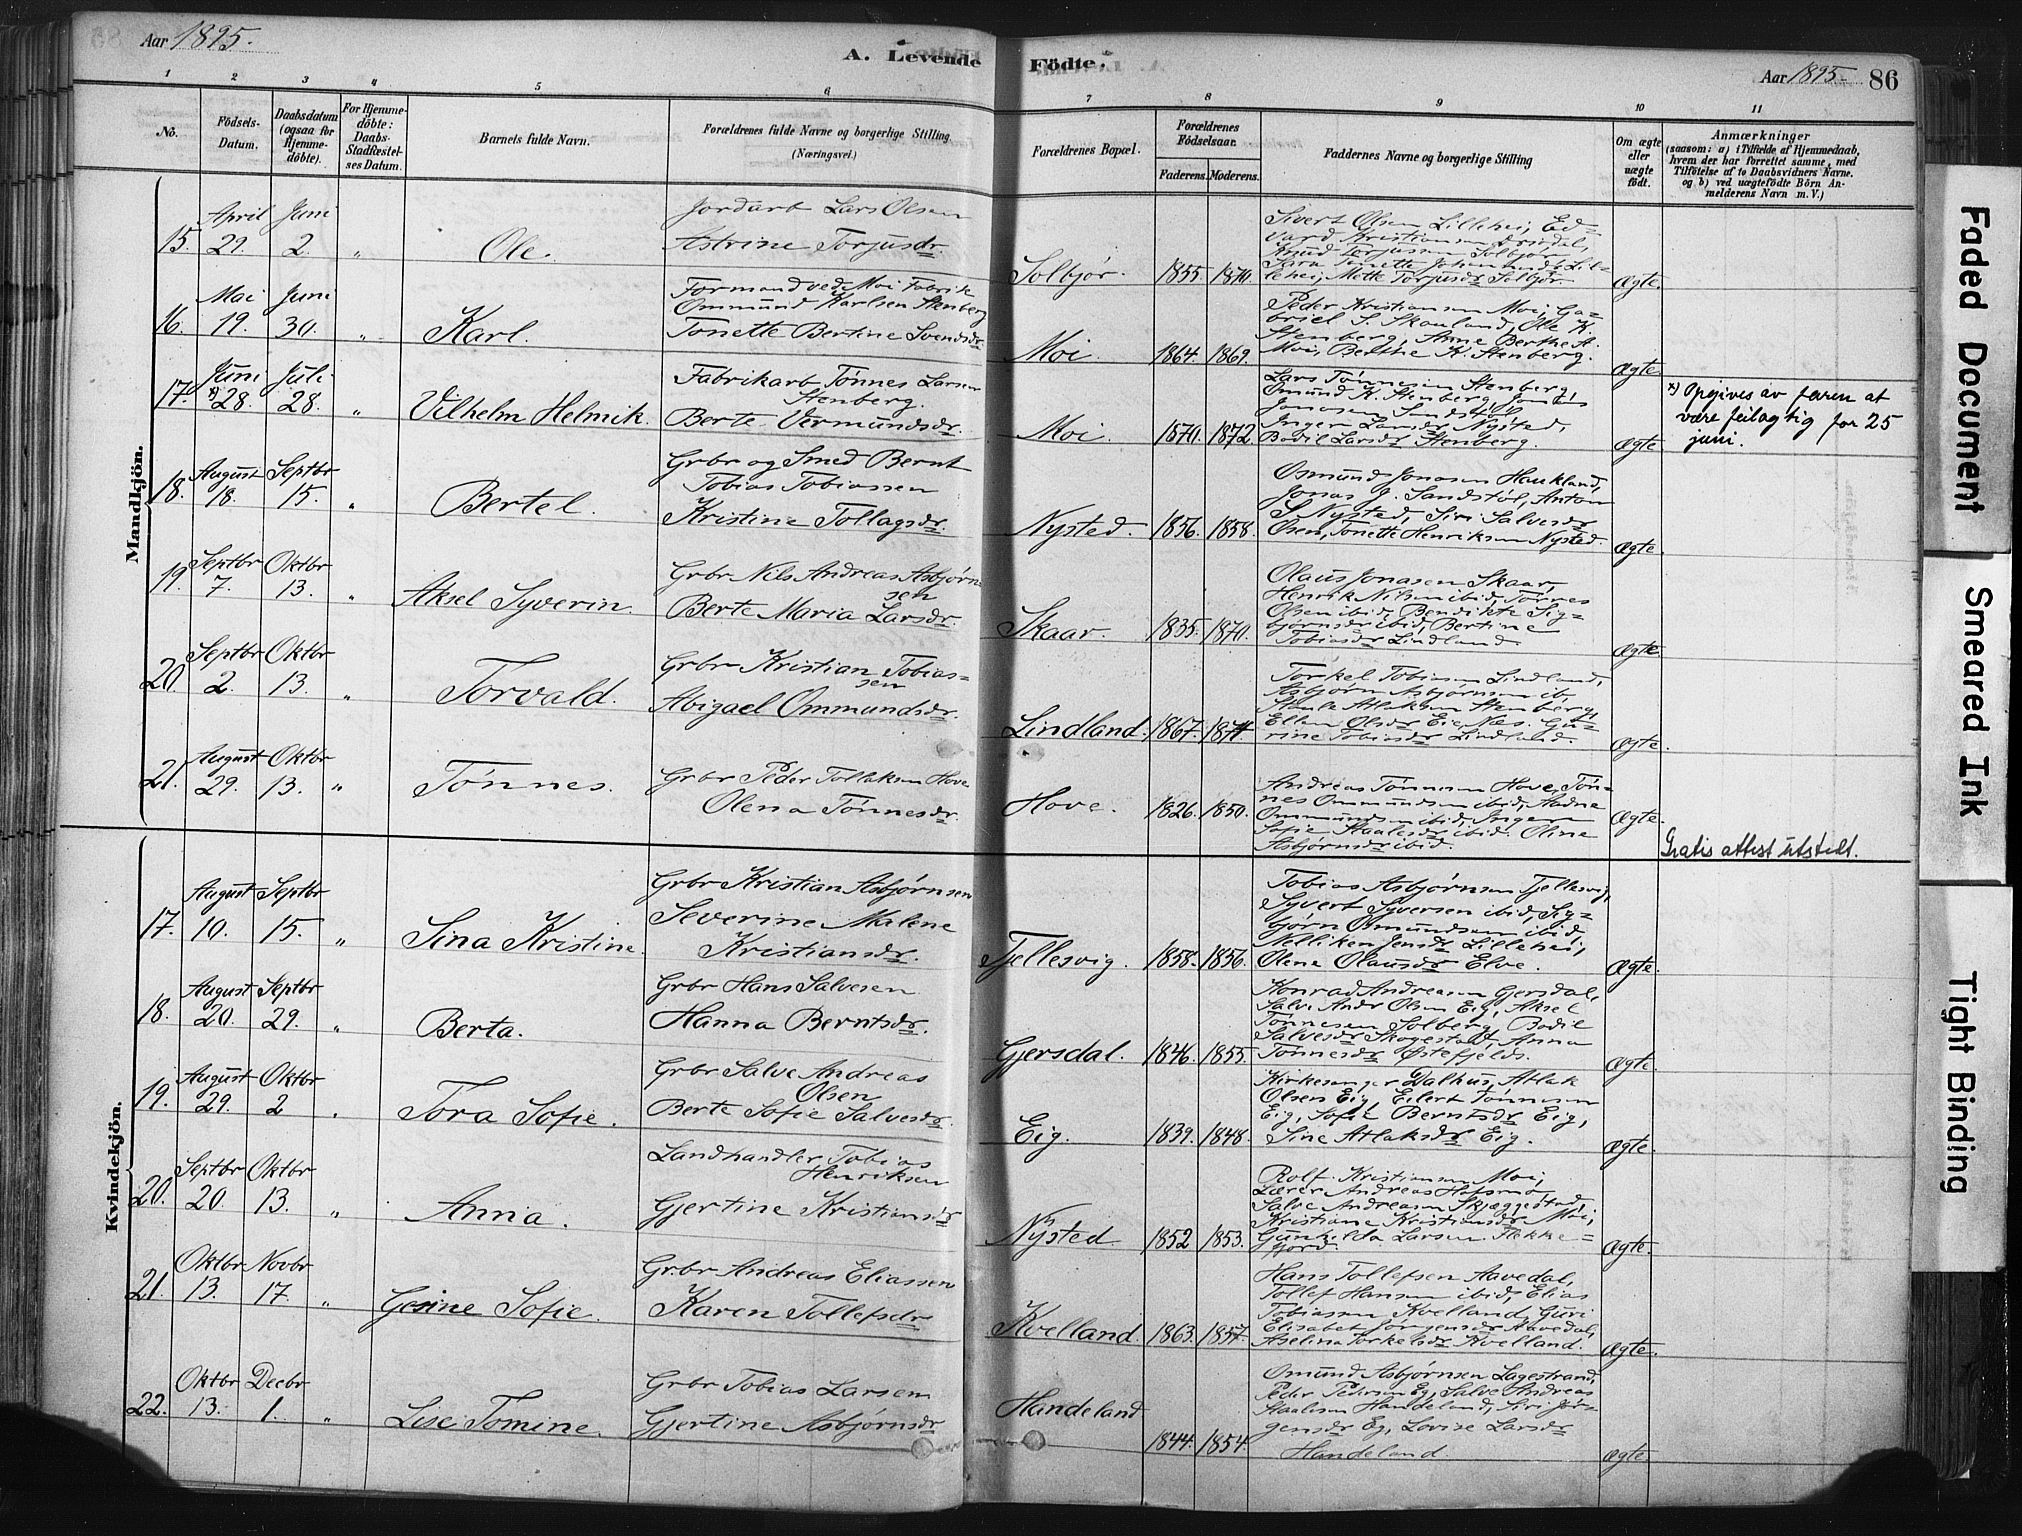 Aar 1895.
A. Levende Födte.
Aar 1895. 86
1 2 3 4 5 6 7 8 9 10 11
No.
Födsels-Datum.
Daabsdatum (ogsaa for Hjemme-döbte).
For Hjemme-döbte: Daabs-Stadfæstel-ses Datum.
Barnets fulde Navn.
Forældrenes fulde Navne og borgerlige Stilling. (Næringsvei.)
Forældrenes Bopæl.
Forældrenes Födselsaar.
Faderens. Moderens.
Faddernes Navne og borgerlige Stilling
Om ægte eller uægte födt.
Anmærkninger
(saasom: a) i Tilfælde af Hjemmedaab,
hvem der har forrettet samme, med
Tilföielse af to Daabsvidners Navne.
og b) ved uægtefödte Börn An-
melderens Navn m. V.)
Mandkjön.
15. April 29. Juni 2. " Ole.
Jordarb Lars Olsen
Astrine Torjusdr.
Solbjør. 1855. 1870.
Sivert Olsen Lillehei, Ed-
vard Kristiansen
Knud Torjussen Solbjør
Lil-
lehei, Mette Torjusdr Solbjør.
Ægte.
16. Mai 19. Juni 30. " Karl.
Formand ved Moi Fabrik
Ommund Karlsen Stenberg
Tonette Bertine Svendsdr.
Moi. 1864. 1869.
Peder Kristiansen Moi, Ga-
briel S. Skauland, Ole K.
Stenberg, Anne Berthe A.
Moi, Berthe K. Stenberg.
Ægte.
17. Juni x) 28. Juli 28. " Vilhelm Helmik.
Fabrikarb Tønnes Larsen
Stenberg.
Berte Vermundsdr.
Moi. 1870. 1872.
Lars Tønnesen Stenberg,
Omund K. Stenberg, Jonas
Jonasen Sandstøl,
Inger Larsdr Nysted,
Bodil Larsdr Stenberg.
Ægte.
x) Opgives av faren at
være feilagtig for 25
juni.
18. August 18. Septbr 15. " Bertel.
Grbr og Smed Bernt
Tobias Tobiassen
Kristine Tollagsdr.
Nysted. 1856. 1858.
Osmund Jonasen Haukland,
Jonas J. Sandstøl, Anton
S Nysted, Siri Salvesdr
Olsen, Tonette Henriksen Nysted.
Ægte.
19. Septbr 7. Oktbr 13. " Aksel Syverin.
Grbr Nils Andreas Asbjørn-
sen
Berte Maria Larsdr.
Skaar. 1835. 1870.
Olaus Jonasen Skaar,
Henrik Nilsen ibid, Tønnes
Olsen ibid, Bendikte Sig-
bjørnsdr ibid, Bertine
Tobiasdr Lindland.
Ægte.
20. Septbr 2. Oktbr 13. " Torvald.
Grbr Kristian Tobias-
sen
Abigael Ommundsdr.
Lindland. 1867. 1871.
Torkel Tobiasen Lindland,
Asbjørn Asbjørnsen ib
Atlaksen Stenberg,
Ellen Olsdr Eie Næs. Gu-
rine Tobiasdr Lindland.
Ægte.
21. August 29. Oktbr 13. " Tønnes.
Grbr Peder Tollaksen Hove
Olena Tønnesdr.
Hove. 1826. 1850.
Andreas Tønnesen Hove, Tøn-
nes Ommundsen ibid, Aadne
Ommundsen ibid, Inger
Sofie Staalesdr ibid. Oline
Asbjørnsdr ibid.
Ægte.
Gratis attest utstedt.
Kvindekjön.
17. August 10. Septbr 15. " Sina Kristine.
Grbr Kristian Asbjørnsen
Severine Malene
Kristiansdr.
Tjellesvig. 1858. 1856.
Tobias Asbjørnsen Tjellesvig,
Syvert Syversen ibid, Sig-
bjørn Osmundsen ibid
Nelliken Jensdr Lillehei,
Olene Olausdr Elve.
Ægte.
18. August 20. Septbr 29. " Berta.
Grbr Hans Salvesen
Hanna Berntsdr.
Gjersdal. 1846. 1855.
Konrad Andreasen Gjersdal,
Salve Andr Olsen Eig, Aksel
Tønnesen Solberg, Bodil
Salvesdr Skogestad, Anna
Tønnesdr Østefjelds.
Ægte.
19. August 29. Oktbr 2 " Tora Sofie.
Grbr Salve Andreas
Olsen
Berte Sofie Salvesdr.
Eig. 1839. 1848.
Kirkesanger Dalhus, Atlak
Olsen Eig, Eilert Tønnesen
Eig, Sofie Berntsdr Eig,
Sine Atlaksdr Eig.
Ægte.
20. Septbr 20. Oktbr 13. " Anna.
Landhandler Tobias
Henriksen
Gjertine Kristiansdr
Nysted 1852 1853.
Rolf Kristiansen Moi,
Lærer Andreas Hafsmo,
Salve Andreasen Skjæggestad,
Kristiane Kristiansdr Moi,
Gunhilda Larsen Flekke-
fjord.
Ægte.
21. Oktbr 13. Novbr 17. " Gesine Sofie.
Grbr Andreas Eliassen
Karen Tollefsdr
Kvelland. 1863. 1857.
Hans Tollefsen Aavedal,
Tollef Hansen ibid, Elias
Tobiassen Kvelland, Guri
Elisabet Jørgensdr Aavedal,
Aselina Torkelsdr Kvelland.
Ægte.
22. Oktbr 13. Decbr 1. " Lise Tomine.
Grbr Tobias Larsen
Gjertine Asbjørnsdr
Handeland 1844. 1854.
Omund Asbjørnsen Lagestrand,
Peder Pedersen Eg, Salve Andreas
Staalesen Handeland, Siri Jør-
gensdr Eg, Lovise Larsdr
Handeland.
Ægte.
Faded Document
Smeared Ink
Tight Binding